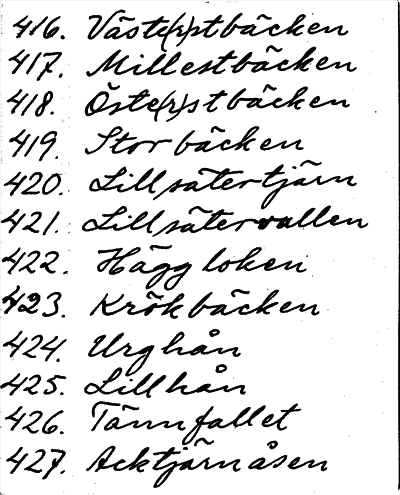 416. Väste(r)stbäcken
417. Millestbäcken
418. Öste(r)stbäcken
419. Storbäcken
420. Lillsätertjärn
421. Lillsätervallen
422. Häggloken
423. Krökbäcken
424. Urghån
425. Lillhån
426. Tännfallet
427. Acktjärnåsen